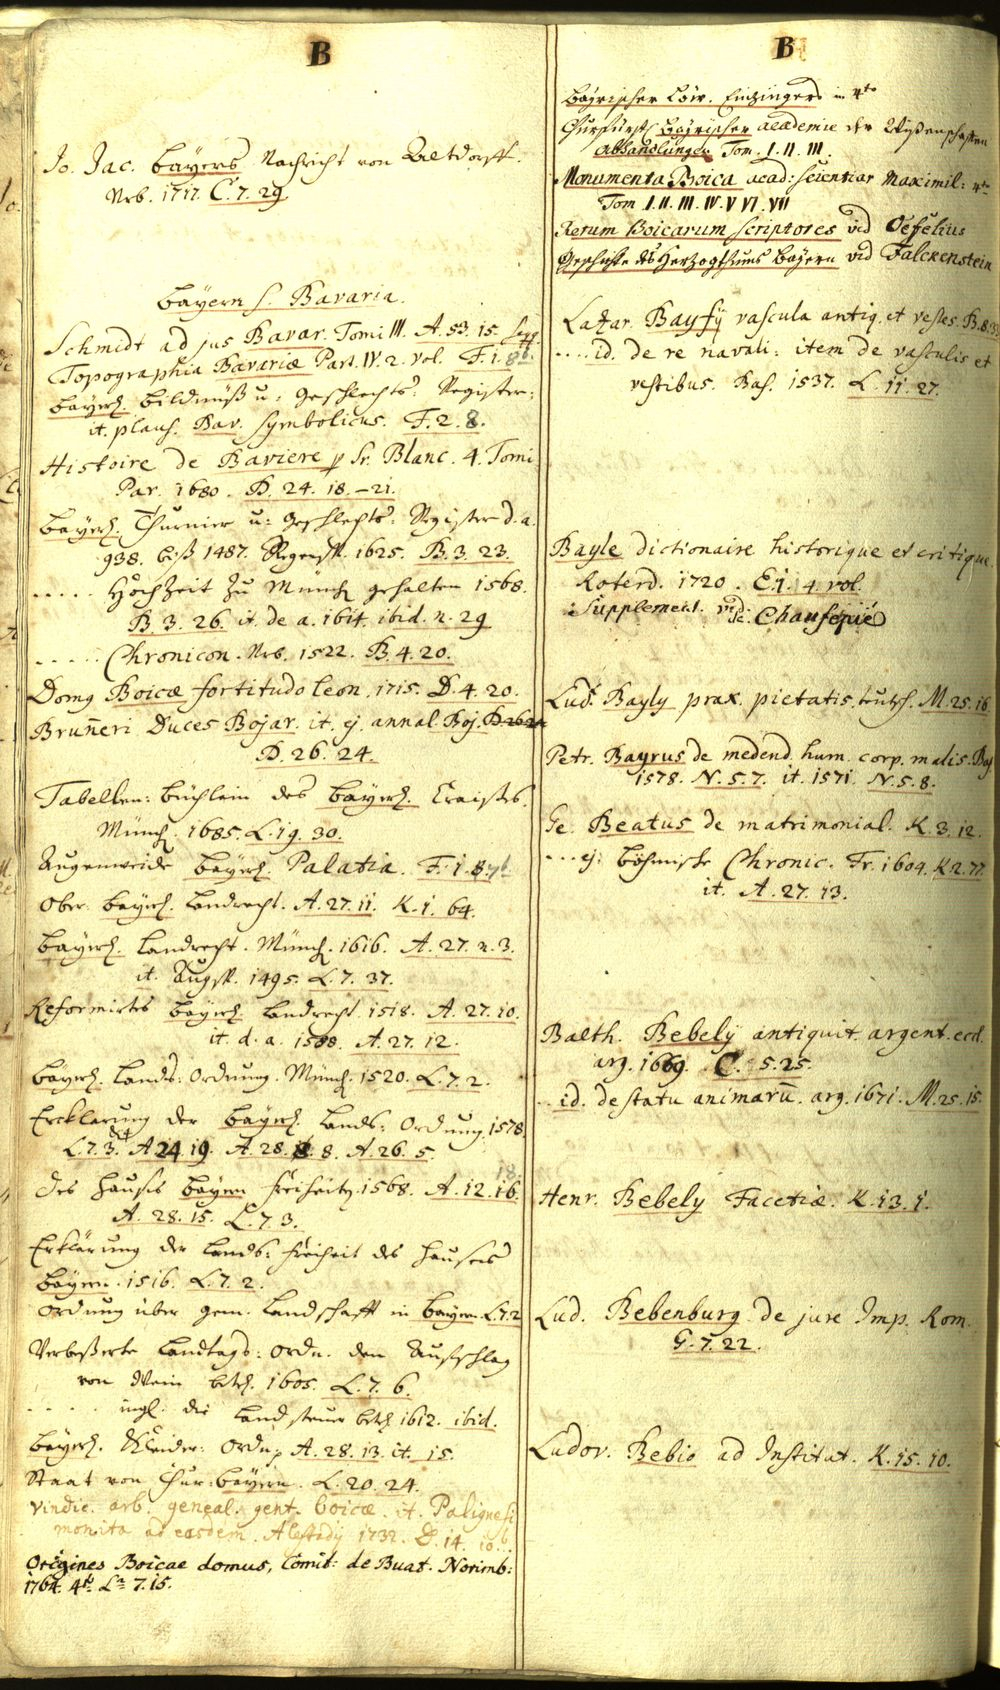 B
Jo. Jac. Bayers Nachricht von Altdorff.
Nrb. 1717. C. 7. 29.
Bayern s. Bavaria.
Schmidt ad jus Bavar. Tomi III. A. 53. 15. seqq
Topographia Bavariæ Part. IV. 2. vol. F. 1. 8b.
Bayerl. Bildnüß u: Geschlechts: Register:
it. plaus. Bav. symbolicus. F. 2. 8.
Histoire de Baviere p Sr. Blanc. 4. Tomi
Par. 1680. D. 24. 18.–21.
Bayerl. Thurnier u: Geschlechts: Register d. a.
938. biß 1487. 1625. B. 3. 23.
..... Hochzeit zu Münch gehalten 1568.
B. 3. 26. it. de a. 1614. ibid. n. 29
..... Chronicon. Nrb. 1522. B. 4. 20.
Domg Boicæ fortitudo leon. 1715. D. 4. 20.
Bruñeri Duces Bojar. it. ej. annal. Boj.
D. 26. 24.
Tabellen: büchlein des bayerl. Craißes.
Münch. 1685. L. 19. 30.
Augenweide bayerl. Palatia. F. 1. 8. 7b
Ober bayerl. Landrecht. A. 27. 11. K. 1. 64.
Bayerl. Landrecht. Münch. 1616. A. 27. n. 3.
it. Augsp. 1495. L. 7. 37.
Reformirtes bayerl. Landrecht 1518. A. 27. 10.
it. d. a. 1588. A. 27. 12.
Bayerl. Lands: Ordnung. Münch. 1520. L. 7. 2.
Erclarung der bayerl. Lands: Ordnung. 1578.
L. 7. 3. A 24. 19. A. 28. 8. A. 26. 5.
18.
des Hauses Bayern freiheitn. 1568. A. 12. 16.
A. 28. 15. L. 7. 3.
Erklärung der Lands: freiheit des Hauses
Bayern. 1516. L. 7. 2.
Ordnung über gem. Landschafft in Bayern. L. 7. 2
Verbeßerte Landtags: Ordn. den Aufschlag
von Wein betr. 1605. L. 7. 6.
..... ingl. die Landsteuer betr. 1612. ibid.
Bayerl. Kleider: Ordn: A. 28. 13. it. 15.
Staat von Chur: Bayern. L. 20. 24.
Vindic. arb. geneal. gent. boicæ. it. Palignesi
monita ad easdem. 1732. D. 14. 10.
Origines Boicae domus, Comit: de Buat. Norimb:
1764. 4to. La. 7. 15.
B
Bayrischer Löw. Einzingers in 4to
Churfürstl Bayrischer academie der Wißenschaften
Abhandlungen Tom. I. II. III.
Monumenta Boica acad: scientiar Maximil: 4to
Tom I. II. III. IV. V VI. VII
Rerum Boicarum scriptores vid Oefelius
Geschichte des Herzogthums Bayern vid Falckenstein
Lazar. Bayfÿ vascula antiq. et vestes. B. 8.
.... id. de re navali: item de vasculis et
vestibus. Bas. 1537. L. 11. 27.
Bayle dictionaire historique et critique.
Roterd. 1720. E. 1. 4 vol.
Supplement. vid. Chaufepié
Lud. Bayly prax. pietatis. teutsch. M. 25. 16.
Petr. Bayrus de medend. hum. corp. malis. Bas.
1578. N. 5. 7. it. 1571. N. 5. 8.
Ge. Beatus de matrimonial. K. 3. 12.
... ej. böhmische Chronic. Fr. 1604. K. 2. 77.
it. A. 27. 13.
Balth. Bebelÿ antiquit. argent. eccl.
arg. 1669. C. 5. 25.
id. de statu animarũ. arg. 1671. M. 25. 15.
Henr. Bebely Facetiæ. K. 13. 1.
Lud. Bebenburg de jure Imp. Rom.
G. 7. 22.
Ludov. Bebio ad Institut. K. 15. 10.